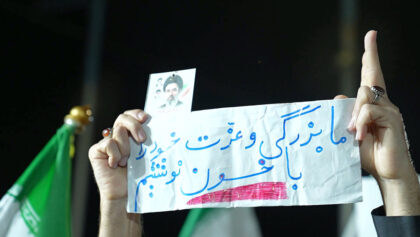 ما بزرگی و عزّت خود را
با خون نوشتیم